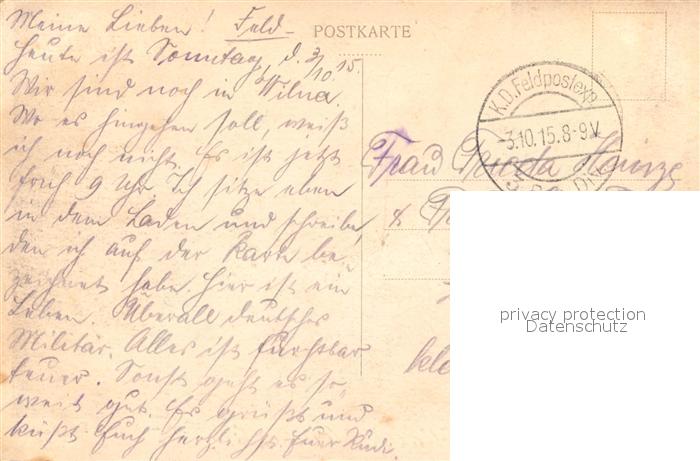 Meine Lieben! Feld-
POSTKARTE
Heute ist Sonntag, d. 3/10.15.
Wir sind noch in Wilna.
Wo es hingehen soll, weiß
ich noch nicht. Es ist jetzt
früh 9 Uhr. Ich sitze eben
in dem Laden und schreibe,
den ich auf der Karte be-
zeichnet habe. Hier ist ein
Leben. Überall deutsches
Militär. Alles ist furchtbar
teuer. Sonst geht es so-
weit gut. Es grüßt und
küßt Euch herzlichst Euer Rudi.
K.D. Feldpostexp.
-3.10.15.8-9V.
Frau
privacy protection
Datenschutz